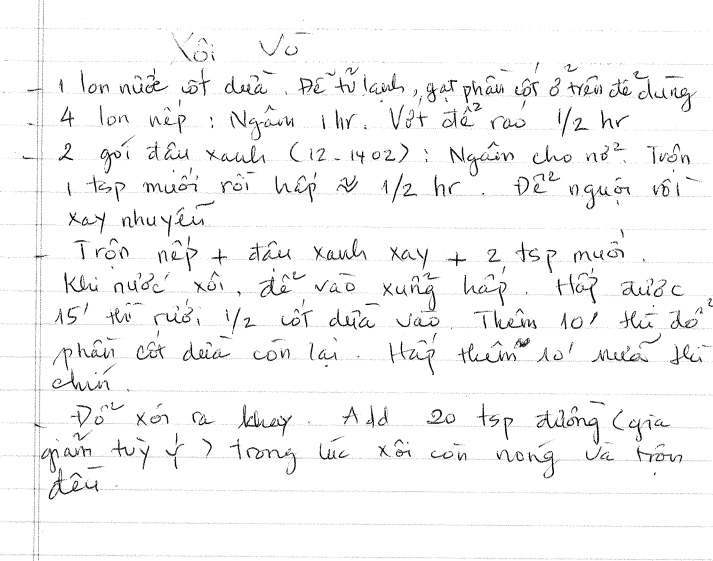 Xôi Vò
- 1 lon nước cốt dừa. Để tủ lạnh, gạt phần cốt ở trên để dùng
- 4 lon nếp : Ngâm 1 hr. Vớt để ráo 1/2 hr
- 2 gói đậu xanh (12-14oz) : Ngâm cho nở. Trộn
1 tsp muối rồi hấp ~ 1/2 hr. Để nguội rồi
xay nhuyễn
- Trộn nếp + đậu xanh xay + 2 tsp muối.
Khi nước xôi, để vào xửng hấp. Hấp được
15' thì rưới 1/2 cốt dừa vào. Thêm 10' thì đổ
phần cốt dừa còn lại. Hấp thêm 10' nữa thì
chín.
- Đổ xôi ra khay. Add 20 tsp đường (gia
giảm tùy ý) trong lúc xôi còn nóng và trộn
đều.